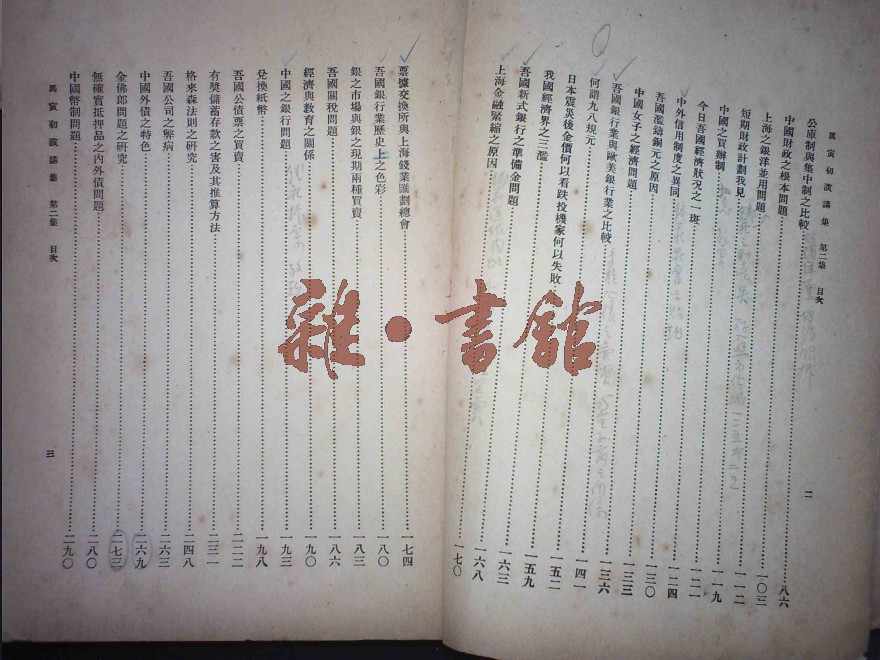 馬寅初演講集 第二集 目次 二
公庫制與集中制之比較……八六
中國財政之根本問題……一〇三
上海之銀洋並用問題……一一二
短期財政計劃我見……一一九
中國之買辦制……一二一
今日吾國經濟狀況之一斑……一二四
中外信用制度之異同……一三〇
吾國濫鑄銅元之原因……一三三
中國女子之經濟問題……一三六
吾國銀行業與歐美銀行業之比較……一四一
何謂九八規元……一五二
日本震災後金價何以看跌投機家何以失敗……一五九
我國經濟界之三濫……一六三
吾國新式銀行之準備金問題……一六八
上海金融緊縮之原因……一七〇
票據交換所與上海錢業匯劃總會……一七四
吾國銀行業歷史上之色彩……一八〇
銀之市場與銀之現期兩種買賣……一八三
吾國關稅問題……一八六
經濟與教育之關係……一九〇
中國之銀行問題……一九三
兌換紙幣……一九八
吾國公債票之買賣……二二二
有獎儲蓄存款之害及其推算方法……二三一
格來森法則之研究……二四八
吾國公司之弊病……二六三
中國外債之特色……二六九
金佛郎問題之研究……二七三
無確實抵押品之內外債問題……二八〇
中國幣制問題……二九〇
馬寅初演講集 第二集 目次 三
雜·書館